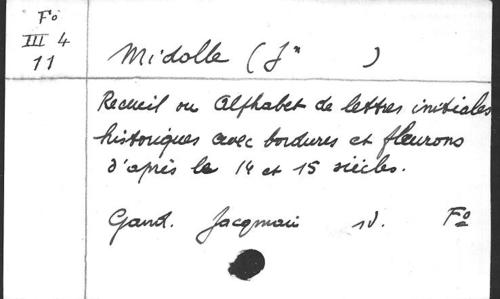 Fº
III 4
11
Midolle (Jn )
Recueil ou Alphabet de lettres initiales
historiques avec bordures et fleurons
d'après le 14 et 15 siècles.
Gand. Jacqmain sd. Fº